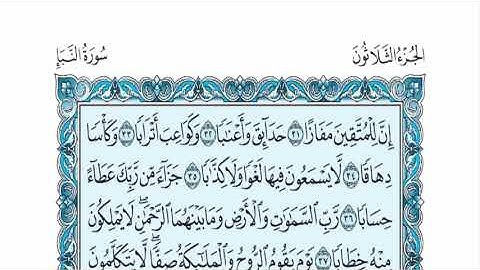 الجزء الثلاثون
سورة النبإ
إِنَّ لِلْمُتَّقِينَ مَفَازًا ٣١ حَدَائِقَ وَأَعْنَابًا ٣٢ وَكَوَاعِبَ أَتْرَابًا ٣٣ وَكَأْسًا
دِهَاقًا ٣٤ لَّا يَسْمَعُونَ فِيهَا لَغْوًا وَلَا كِذَّابًا ٣٥ جَزَاءً مِّن رَّبِّكَ عَطَاءً
حِسَابًا ٣٦ رَّبِّ السَّمَٰوَٰتِ وَالْأَرْضِ وَمَا بَيْنَهُمَا الرَّحْمَٰنِ ۖ لَا يَمْلِكُونَ
مِنْهُ خِطَابًا ٣٧ يَوْمَ يَقُومُ الرُّوحُ وَالْمَلَٰئِكَةُ صَفًّا ۖ لَّا يَتَكَلَّمُونَ